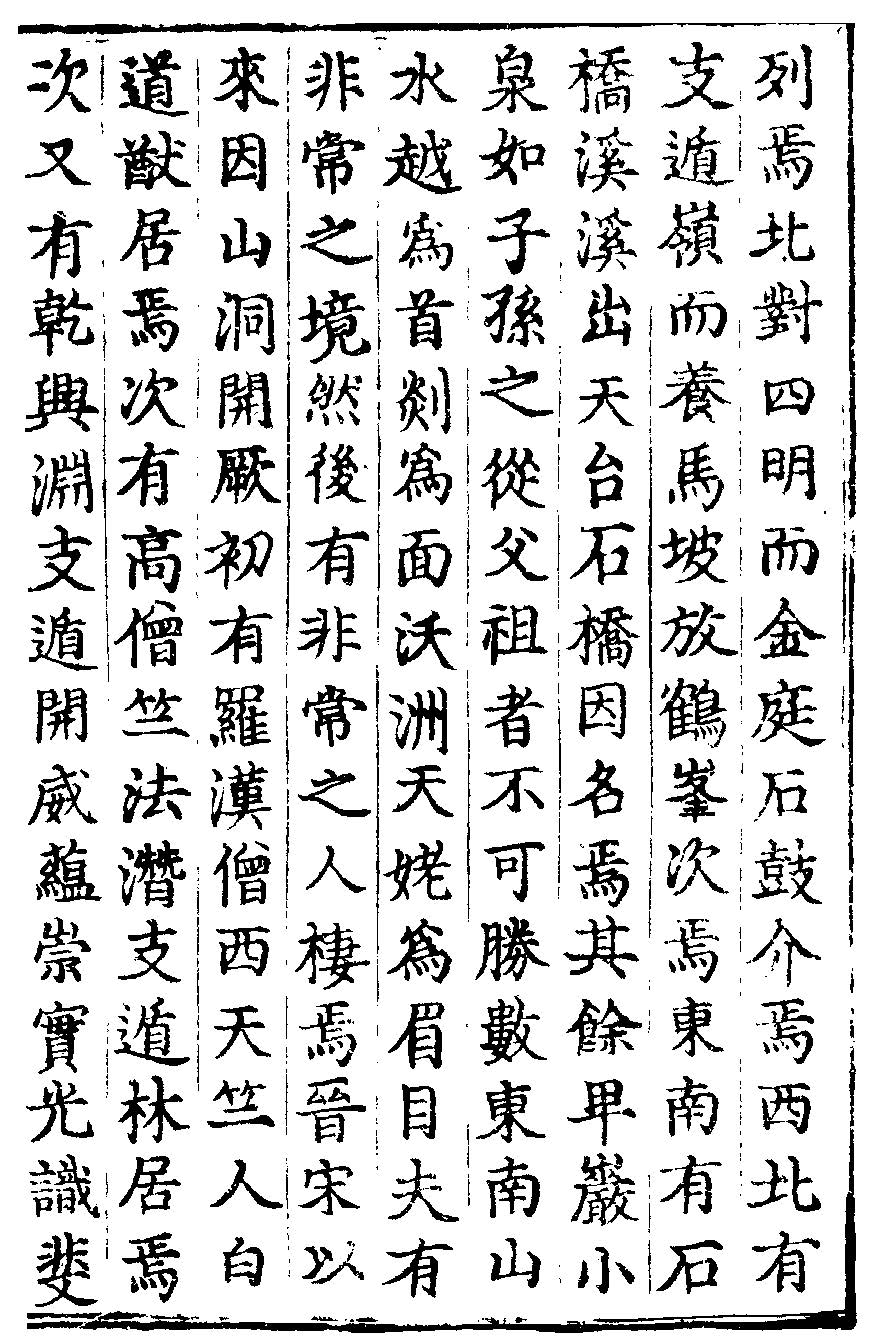 列焉北對四明而金庭石鼓介焉西北有
支遁嶺而養馬坡放鶴峯次焉東南有石
橋溪溪出天台石橋因名焉其餘卑巖小
泉如子孫之從父祖者不可勝數東南山
水越爲首剡爲面沃洲天姥爲眉目夫有
非常之境然後有非常之人棲焉晉宋以
來因山洞開厥初有羅漢僧西天竺人白
道猷居焉次有高僧竺法潛支遁林居焉
次又有乾興淵支遁開威蘊崇實光識斐